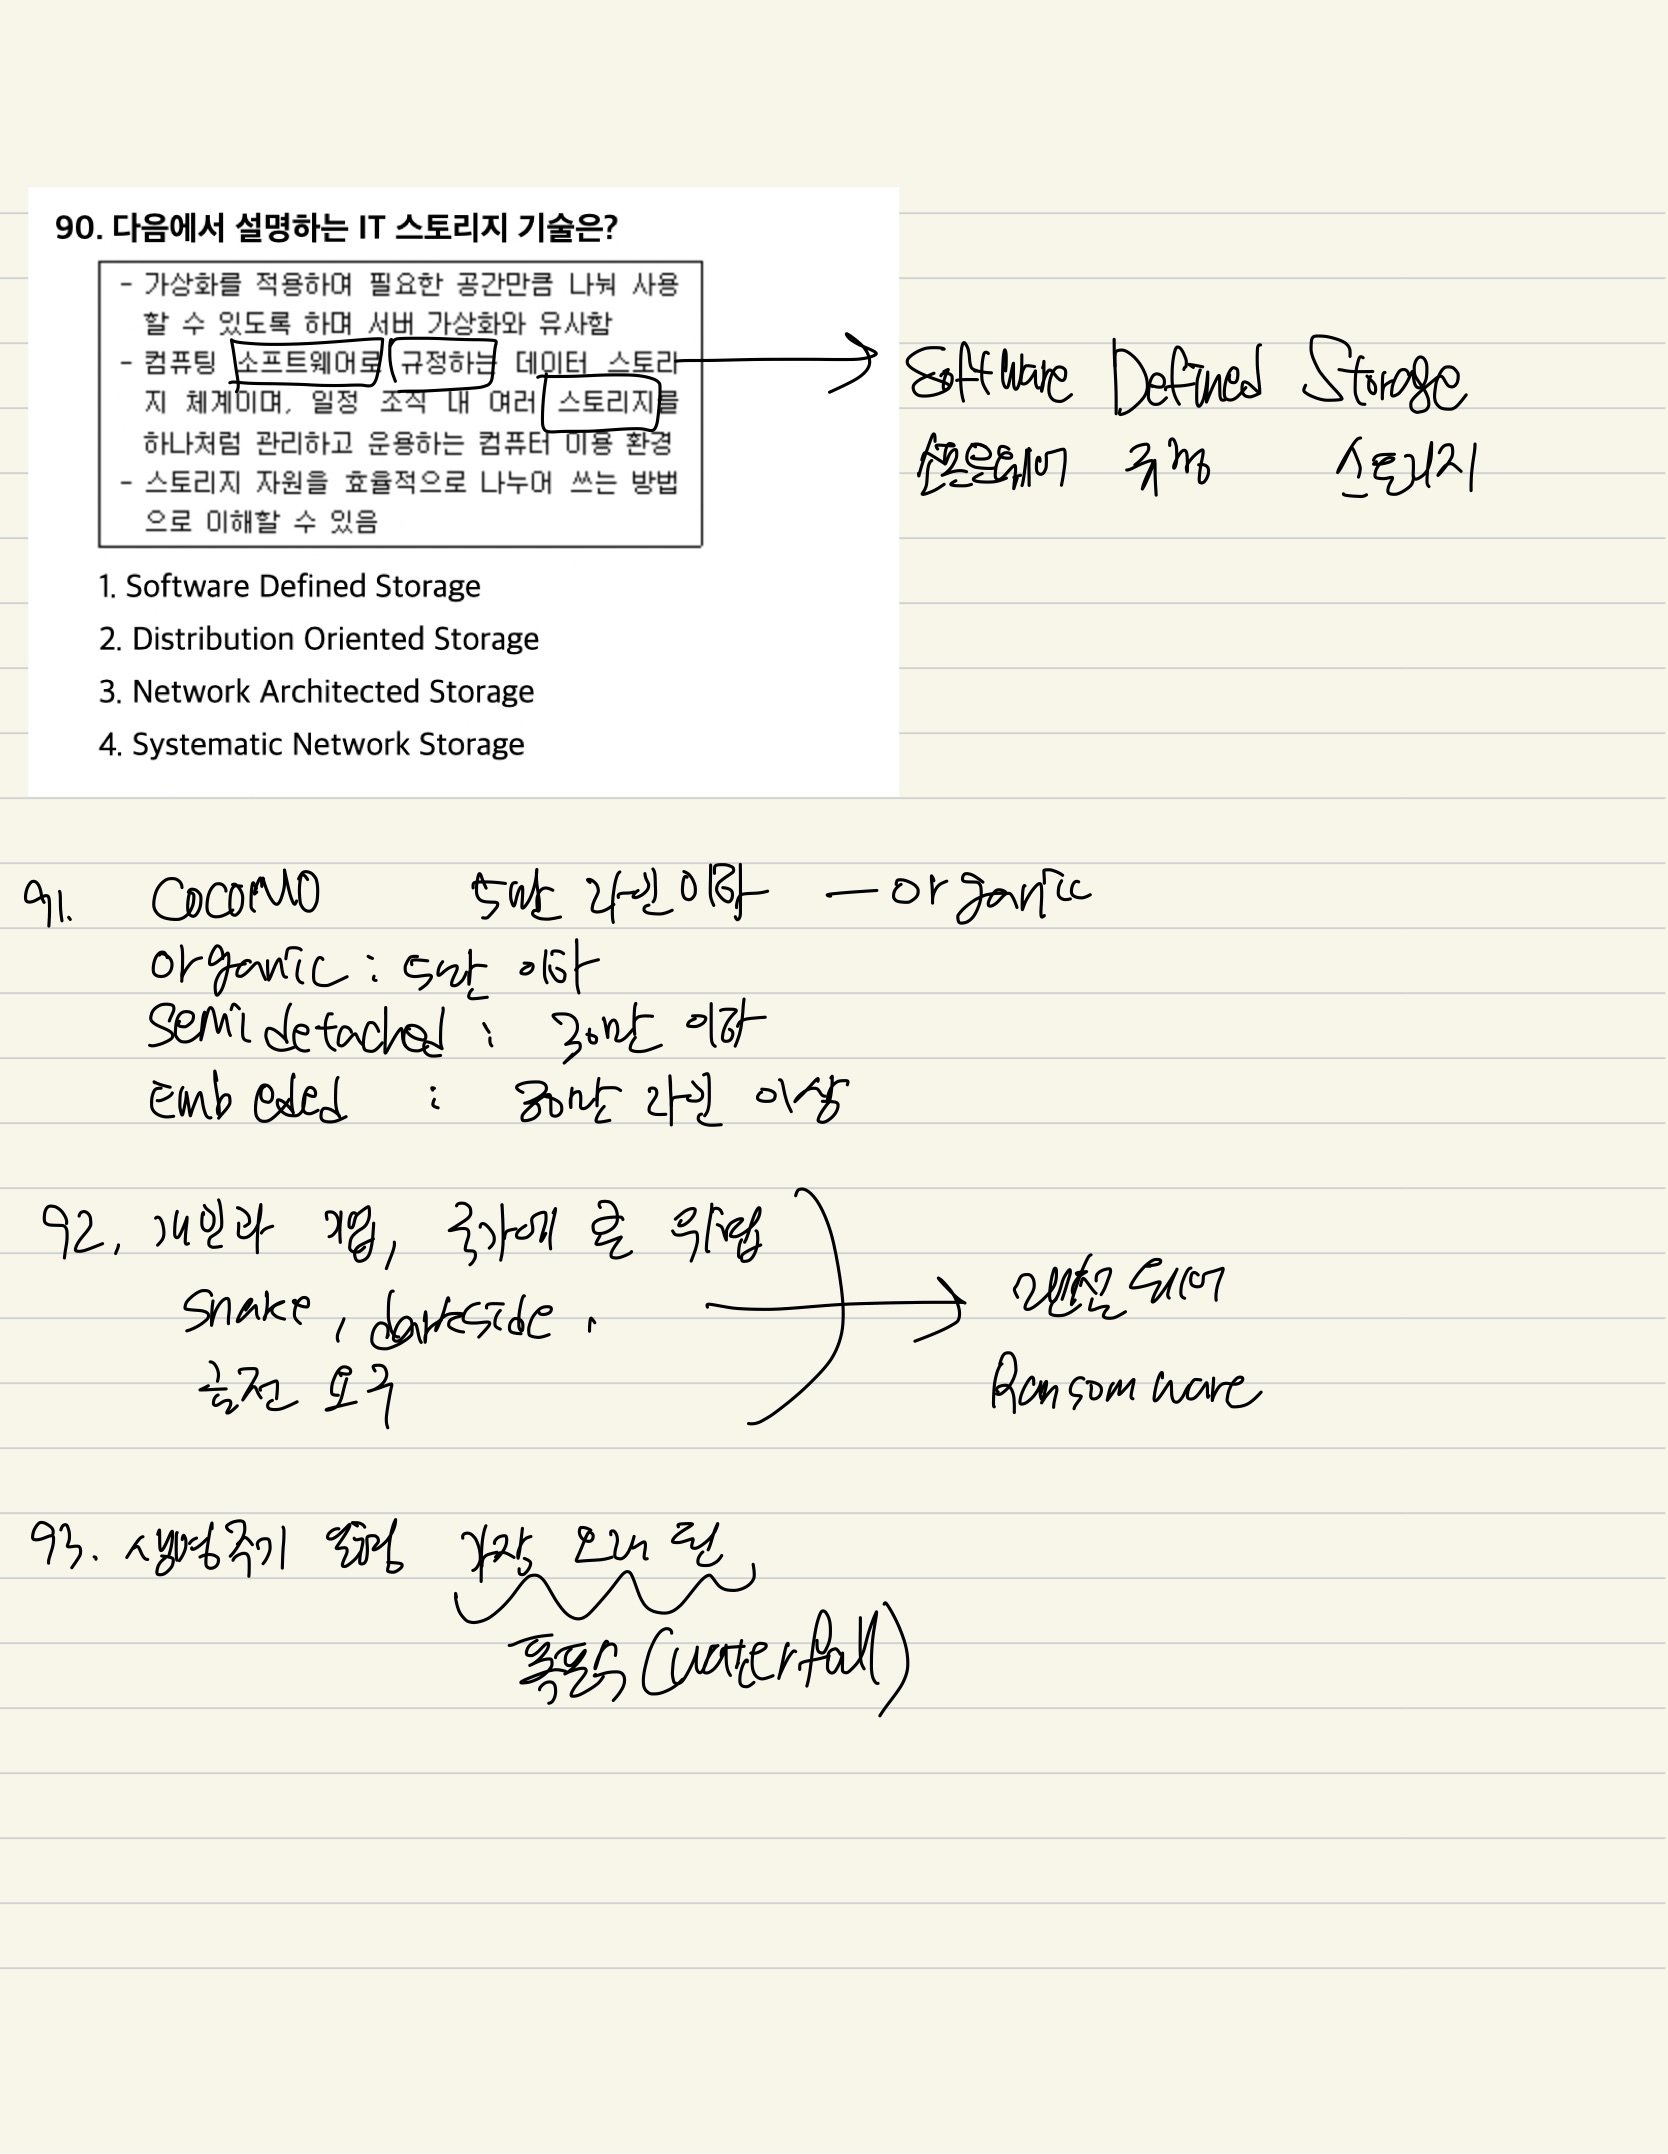 90. 다음에서 설명하는 IT 스토리지 기술은?
- 가상화를 적용하여 필요한 공간만큼 나눠 사용
할 수 있도록 하며 서버 가상화와 유사함
- 컴퓨팅 소프트웨어로 규정하는 데이터 스토리
지 체계이며, 일정 조직 내 여러 스토리지를
하나처럼 관리하고 운용하는 컴퓨터 이용 환경
- 스토리지 자원을 효율적으로 나누어 쓰는 방법
으로 이해할 수 있음
Software Defined Storage
소프트웨어 규정 스토리지
1. Software Defined Storage
2. Distribution Oriented Storage
3. Network Architected Storage
4. Systematic Network Storage
91. COCOMO 5만 라인이하 - organic
organic : 5만 이하
Semi detached : 30만 이하
Embeded : 30만 라인 이상
92. 개인과 기업, 국가에 큰 위협
snake, darkside,
금전 요구
랜섬웨어
Ransomware
93. 생명주기 모형 가장 오래 된
폭포수 (waterfall)